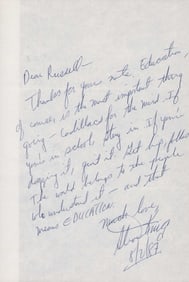 Dear Russell—
Thanks for your note. Education
of course is the most important thing
going — Cadillacs for the mind. If
you're in school, stay in. If you're
digging it, great. Get hip, fella.
The world belongs to the people
who understand it — and that
means EDUCATION.
Much love,